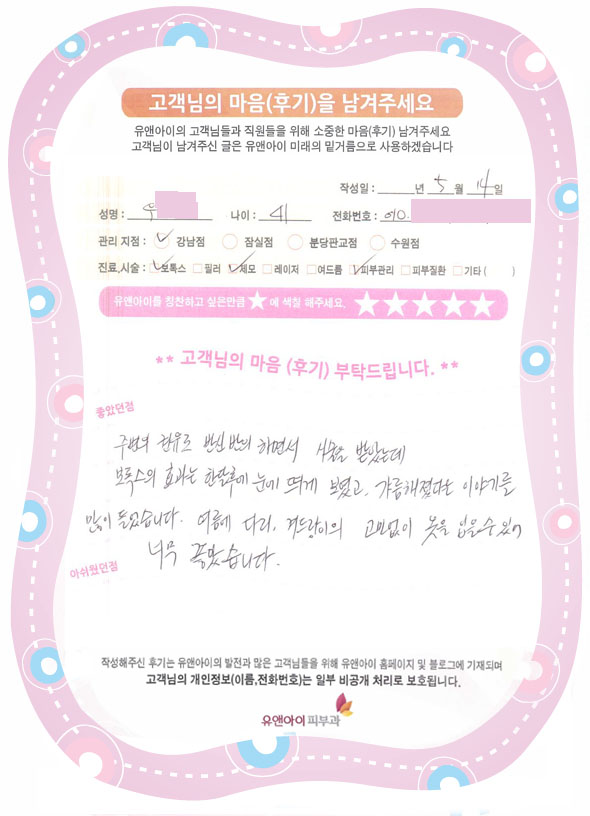 고객님의 마음(후기)을 남겨주세요
유앤아이의 고객님들과 직원들을 위해 소중한 마음(후기) 남겨주세요
고객님이 남겨주신 글은 유앤아이 미래의 밑거름으로 사용하겠습니다
작성일 : 년 5 월 14 일
성명 : 우 나이 : 전화번호 : 010.
관리 지점 : 강남점 잠실점 분당판교점 수원점
진료,시술 : 보톡스 필러 제모 레이저 여드름 피부관리 피부질환 기타 ( )
유앤아이를 칭찬하고 싶은만큼 ★ 에 색칠 해주세요. ★★★★★
** 고객님의 마음 (후기) 부탁드립니다. **
좋았던점
주변의 권유로 반신반의 하면서 시술을 받았는데
보톡스의 효과는 한달후에 눈에 띄게 보였고, 갸름해졌다는 이야기를
많이 들었습니다. 여름에 다리, 겨드랑이의 고민없이 옷을 입을수 있어
너무 좋았습니다.
아쉬웠던점
작성해주신 후기는 유앤아이의 발전과 많은 고객님들을 위해 유앤아이 홈페이지 및 블로그에 기재되며
고객님의 개인정보(이름,전화번호)는 일부 비공개 처리로 보호됩니다.
유앤아이피부과